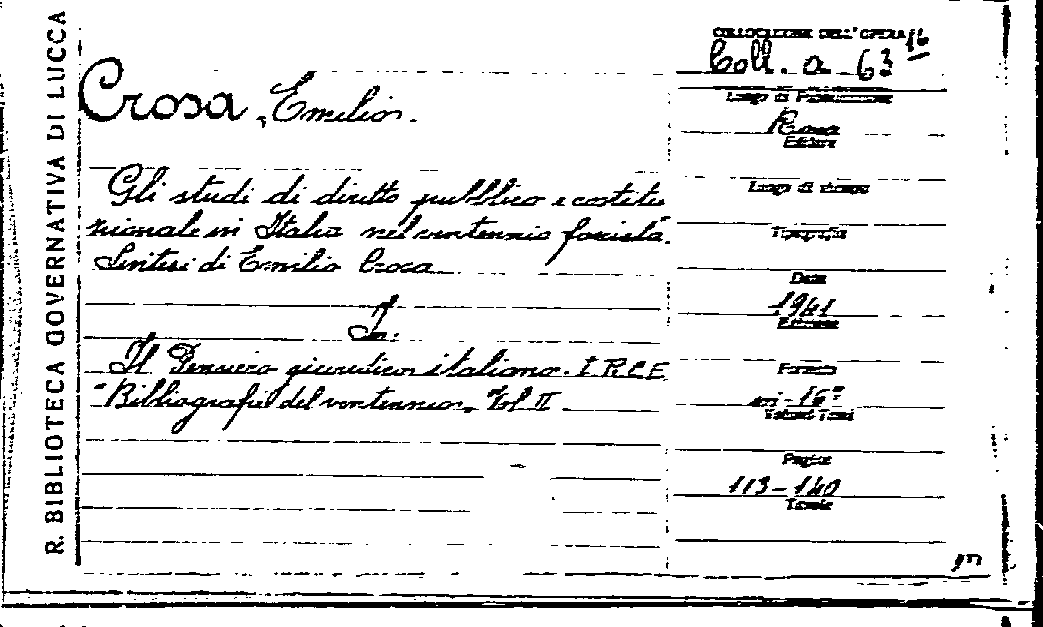 R. BIBLIOTECA GOVERNATIVA DI LUCCA
Crosa, Emilio.
Gli studi di diritto pubblico e costitu
zionale in Italia nel ventennio fascista.
Sintesi di Emilio Croca
In:
Il Pensiero giuridico italiano. I.R.C.E
"Bibliografie del ventennio". Vol II
COLLOCAZIONE DELL'OPERA
Coll. a 63 16
Luogo di Pubblicazione
Roma
Editore
Luogo di stampa
Tipografia
Data
1941
Edizione
Formato
in-16°
Volumi Tomi
Pagine
113-140
Tavole